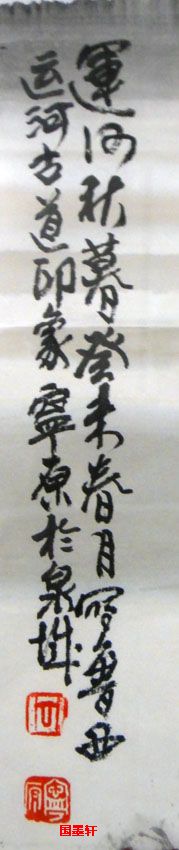 運河秋暮癸未春月寫魯西
运河古道印象寧原於泉城
国墨轩